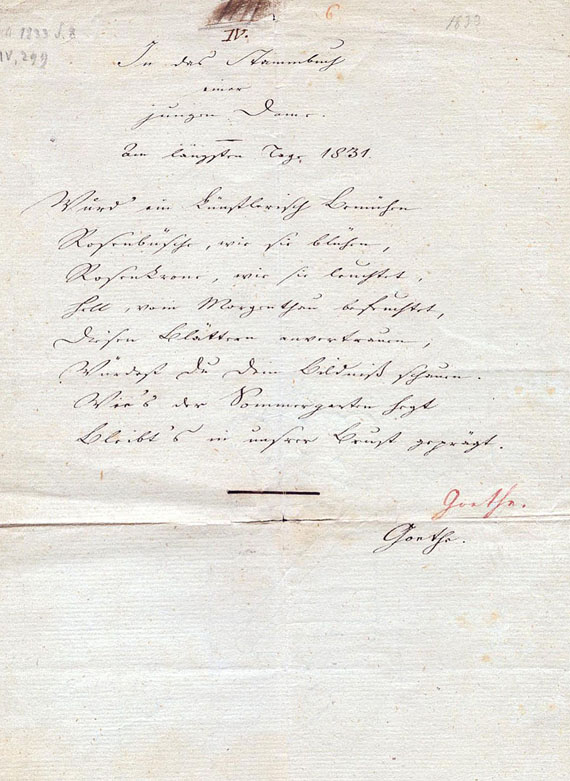 6
1833
1833 S. 8
IV, 299
IV.
In das Stammbuch
einer
jungen Dame.
Am längsten Tage 1831.
Würd' ein künstlerisch Bemühen
Rosenbüsche, wie sie blühen,
Rosenkrone, wie sie leuchtet,
Hell, vom Morgenthau befeuchtet,
Diesen Blättern anvertrauen,
Würdest Du Dein Bildniß schauen.
Wie's der Sommergarten hegt
Bleibt's in unsrer Brust geprägt.
Goethe.
Goethe.